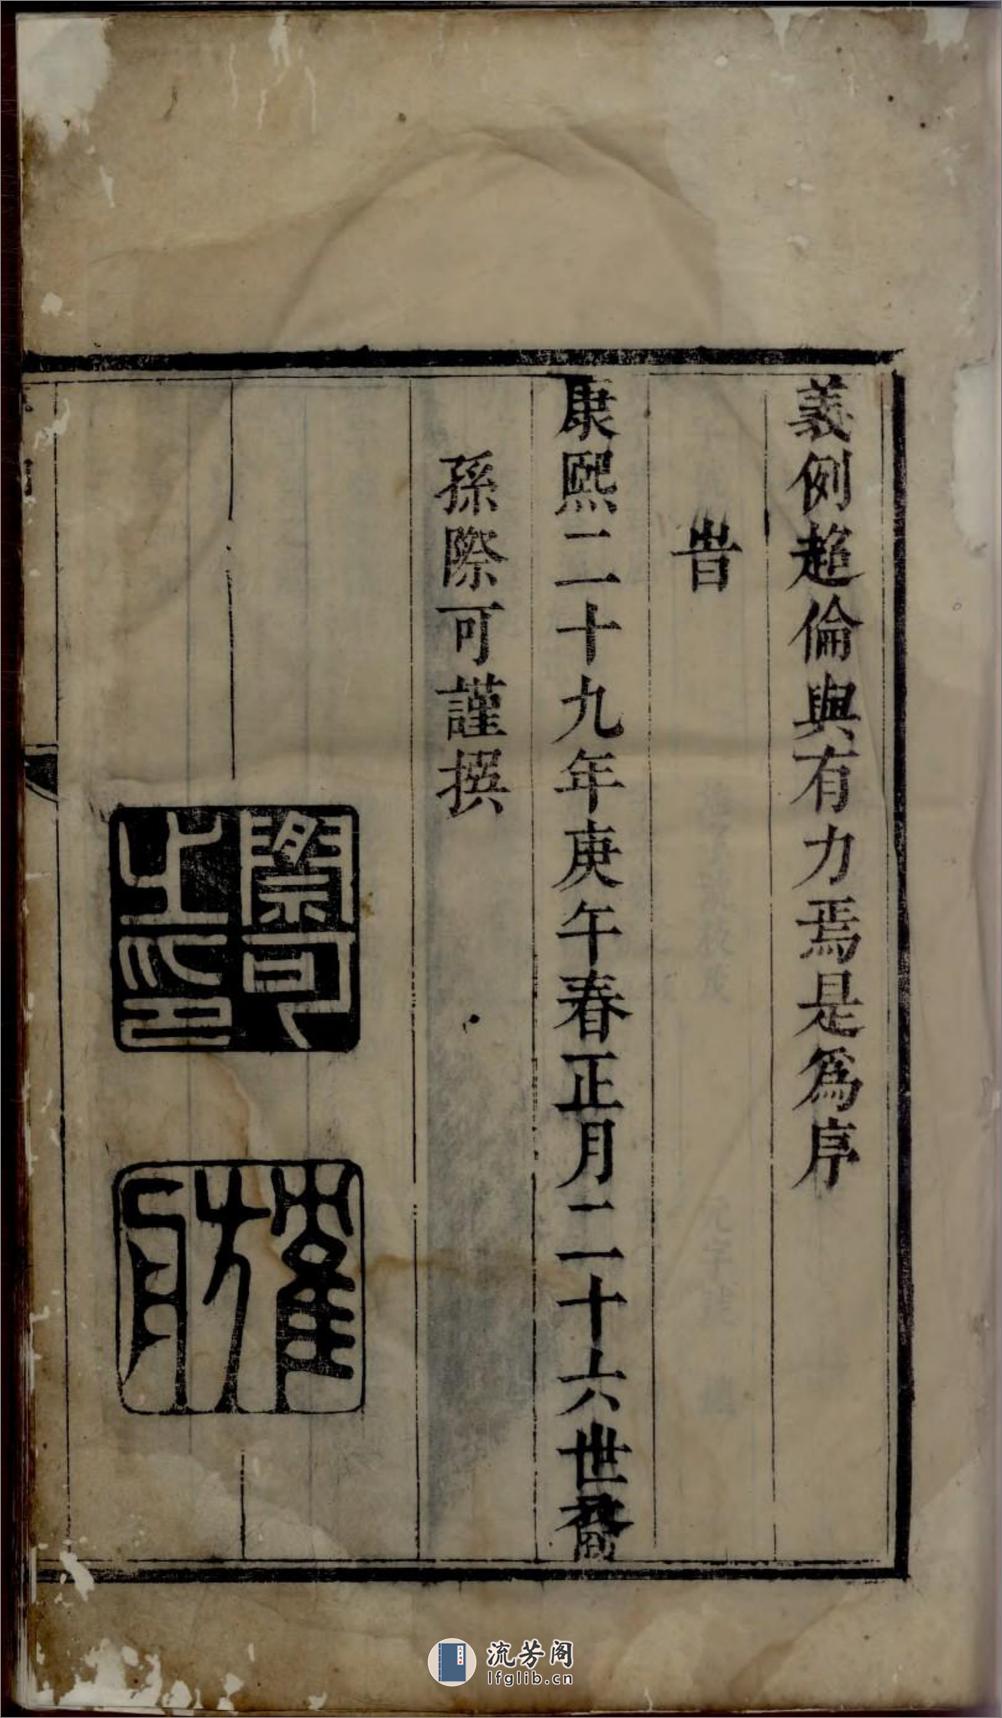 義例趨倫與有力焉是為序
旹
康熙二十九年庚午春正月二十六世裔
孫際可謹撰
際可
之印
流芳阁
lfglib.cn